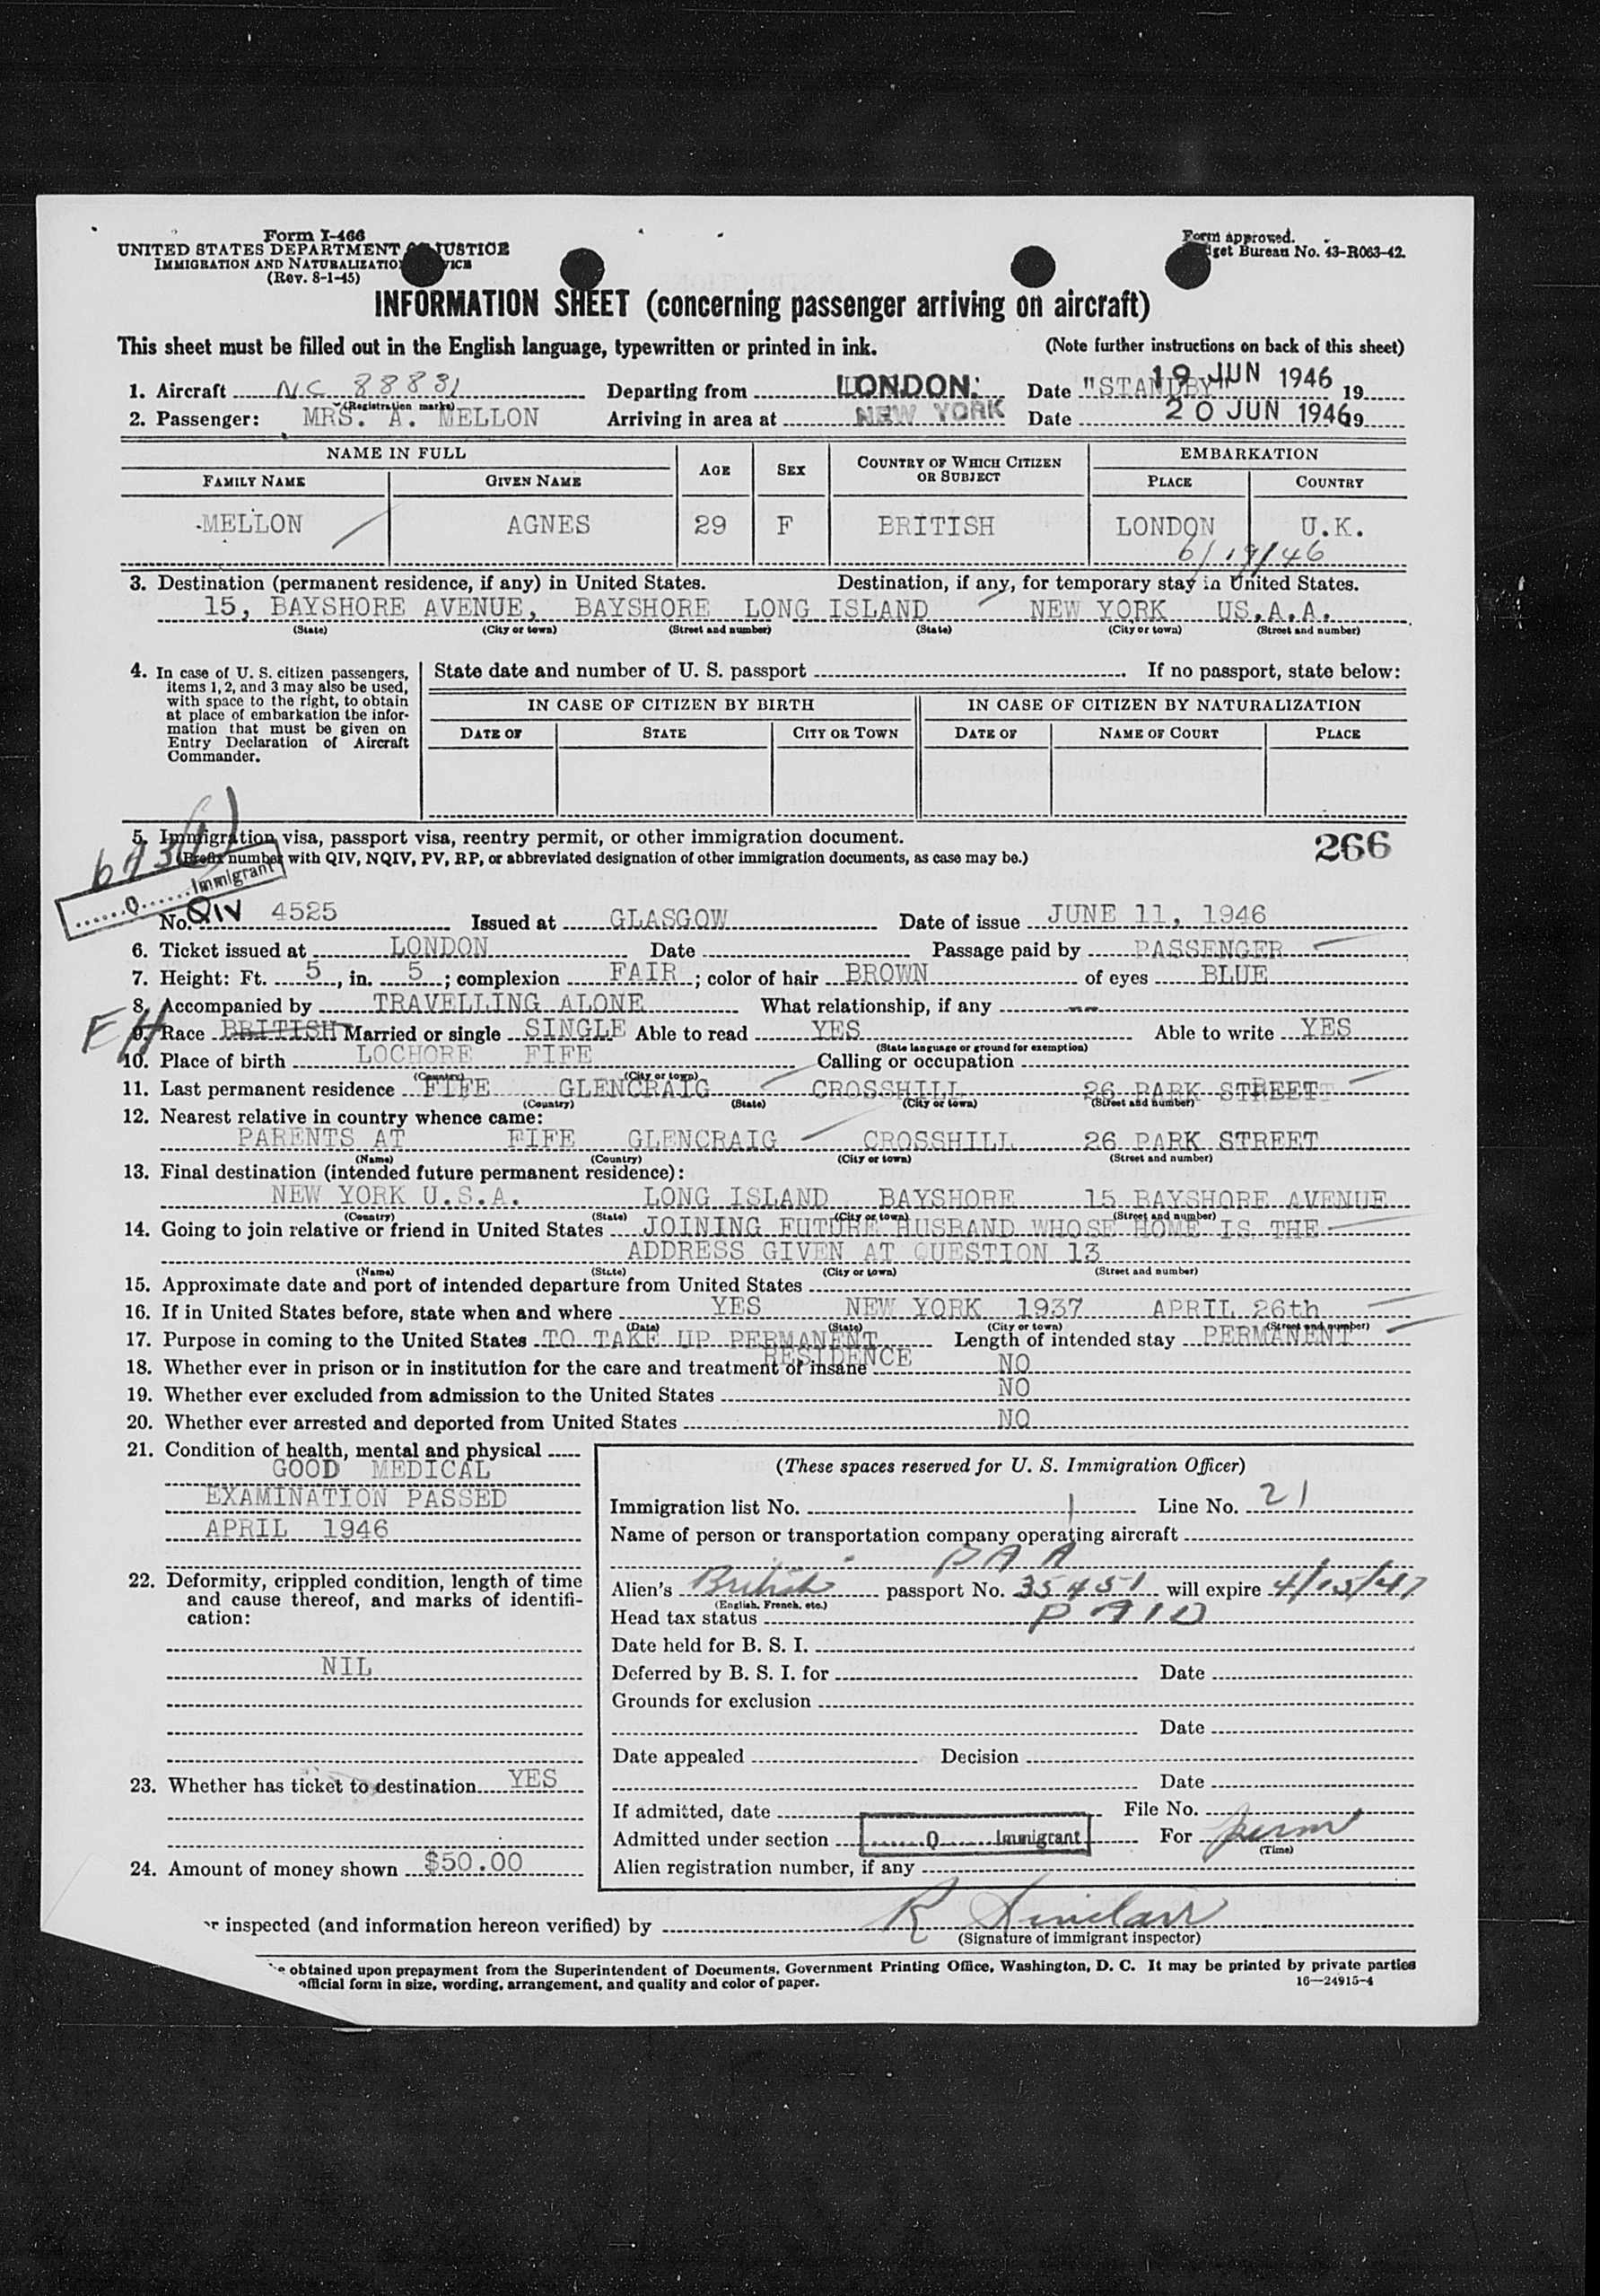 Form I-466
UNITED STATES DEPARTMENT OF JUSTICE
IMMIGRATION AND NATURALIZATION SERVICE
(Rev. 8-1-45)
Form approved.
Budget Bureau No. 43-R063-42.
INFORMATION SHEET (concerning passenger arriving on aircraft)
This sheet must be filled out in the English language, typewritten or printed in ink. (Note further instructions on back of this sheet)
1. Aircraft NC 88831 Departing from LONDON. Date "STANDBY" 19 JUN 1946 19
(Registration marks)
2. Passenger: MRS. A. MELLON Arriving in area at NEW YORK Date 20 JUN 1946 19
NAME IN FULL AGE SEX COUNTRY OF WHICH CITIZEN OR SUBJECT EMBARKATION
FAMILY NAME GIVEN NAME PLACE COUNTRY
MELLON AGNES 29 F BRITISH LONDON U.K.
6/19/46
3. Destination (permanent residence, if any) in United States. Destination, if any, for temporary stay in United States.
15, BAYSHORE AVENUE, BAYSHORE LONG ISLAND NEW YORK US.A.A.
(State) (City or town) (Street and number) (State) (City or town) (Street and number)
4. In case of U. S. citizen passengers, items 1, 2, and 3 may also be used, with space to the right, to obtain at place of embarkation the information that must be given on Entry Declaration of Aircraft Commander.
State date and number of U. S. passport If no passport, state below:
IN CASE OF CITIZEN BY BIRTH IN CASE OF CITIZEN BY NATURALIZATION
DATE OF STATE CITY OR TOWN DATE OF NAME OF COURT PLACE
5. Immigration visa, passport visa, reentry permit, or other immigration document. 266
(Prefix number with QIV, NQIV, PV, RP, or abbreviated designation of other immigration documents, as case may be.)
Q Immigrant
No. QIV 4525 Issued at GLASGOW Date of issue JUNE 11, 1946
6. Ticket issued at LONDON Date Passage paid by PASSENGER
7. Height: Ft. 5, in. 5; complexion FAIR; color of hair BROWN of eyes BLUE
8. Accompanied by TRAVELLING ALONE What relationship, if any --
9. Race BRITISH Married or single SINGLE Able to read YES Able to write YES
(State language or ground for exemption)
10. Place of birth LOCHORE FIFE Calling or occupation
(Country) (City or town)
11. Last permanent residence FIFE GLENCRAIG CROSSHILL 26 PARK STREET
(Country) (State) (City or town) (Street and number)
12. Nearest relative in country whence came:
PARENTS AT FIFE GLENCRAIG CROSSHILL 26 PARK STREET
(Name) (Country) (City or town) (Street and number)
13. Final destination (intended future permanent residence):
NEW YORK U.S.A. LONG ISLAND BAYSHORE 15 BAYSHORE AVENUE
(Country) (State) (City or town) (Street and number)
14. Going to join relative or friend in United States JOINING FUTURE HUSBAND WHOSE HOME IS THE
ADDRESS GIVEN AT QUESTION 13
(Name) (State) (City or town) (Street and number)
15. Approximate date and port of intended departure from United States
16. If in United States before, state when and where YES NEW YORK 1937 APRIL 26th
(Date) (State) (City or town) (Street and number)
17. Purpose in coming to the United States TO TAKE UP PERMANENT RESIDENCE Length of intended stay PERMANENT
18. Whether ever in prison or in institution for the care and treatment of insane NO
19. Whether ever excluded from admission to the United States NO
20. Whether ever arrested and deported from United States NO
21. Condition of health, mental and physical
GOOD MEDICAL
EXAMINATION PASSED
APRIL 1946
22. Deformity, crippled condition, length of time and cause thereof, and marks of identification:
NIL
23. Whether has ticket to destination YES
24. Amount of money shown $50.00
(These spaces reserved for U. S. Immigration Officer)
Immigration list No. 1 Line No. 21
Name of person or transportation company operating aircraft
PAA
Alien's British passport No. 35451 will expire 4/15/47
(English, French, etc.)
Head tax status PAID
Date held for B. S. I.
Deferred by B. S. I. for Date
Grounds for exclusion
Date
Date appealed Decision
Date
If admitted, date File No.
Admitted under section Q Immigrant For perm
(Time)
Alien registration number, if any
r inspected (and information hereon verified) by R Sinclair
(Signature of immigrant inspector)
be obtained upon prepayment from the Superintendent of Documents, Government Printing Office, Washington, D. C. It may be printed by private parties
official form in size, wording, arrangement, and quality and color of paper. 16—24915-4